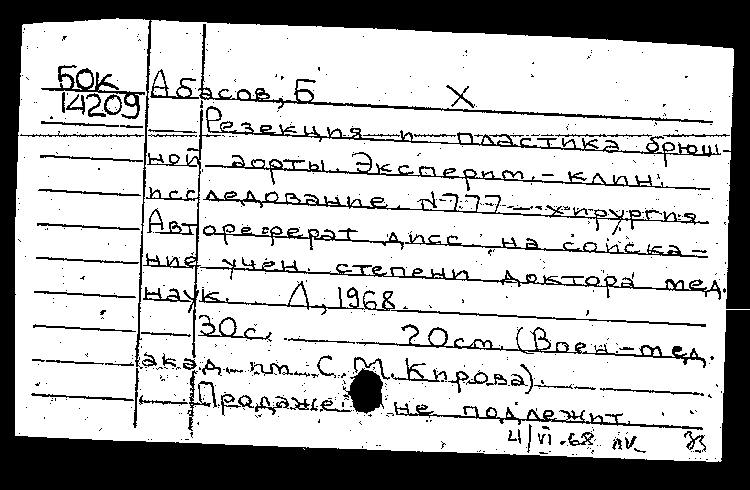 БОК
14209
Абасов, Б X
Резекция и пластика брюш-
ной аорты. Эксперим.-клин.
исследование. N777 - хирургия
Автореферат дисс. на соиска-
ние учен. степени доктора мед.
наук. Л., 1968.
30с. 20см. (Воен.-мед.
акад. им. С.М. Кирова).
Продаже не подлежит.
4/VI.68